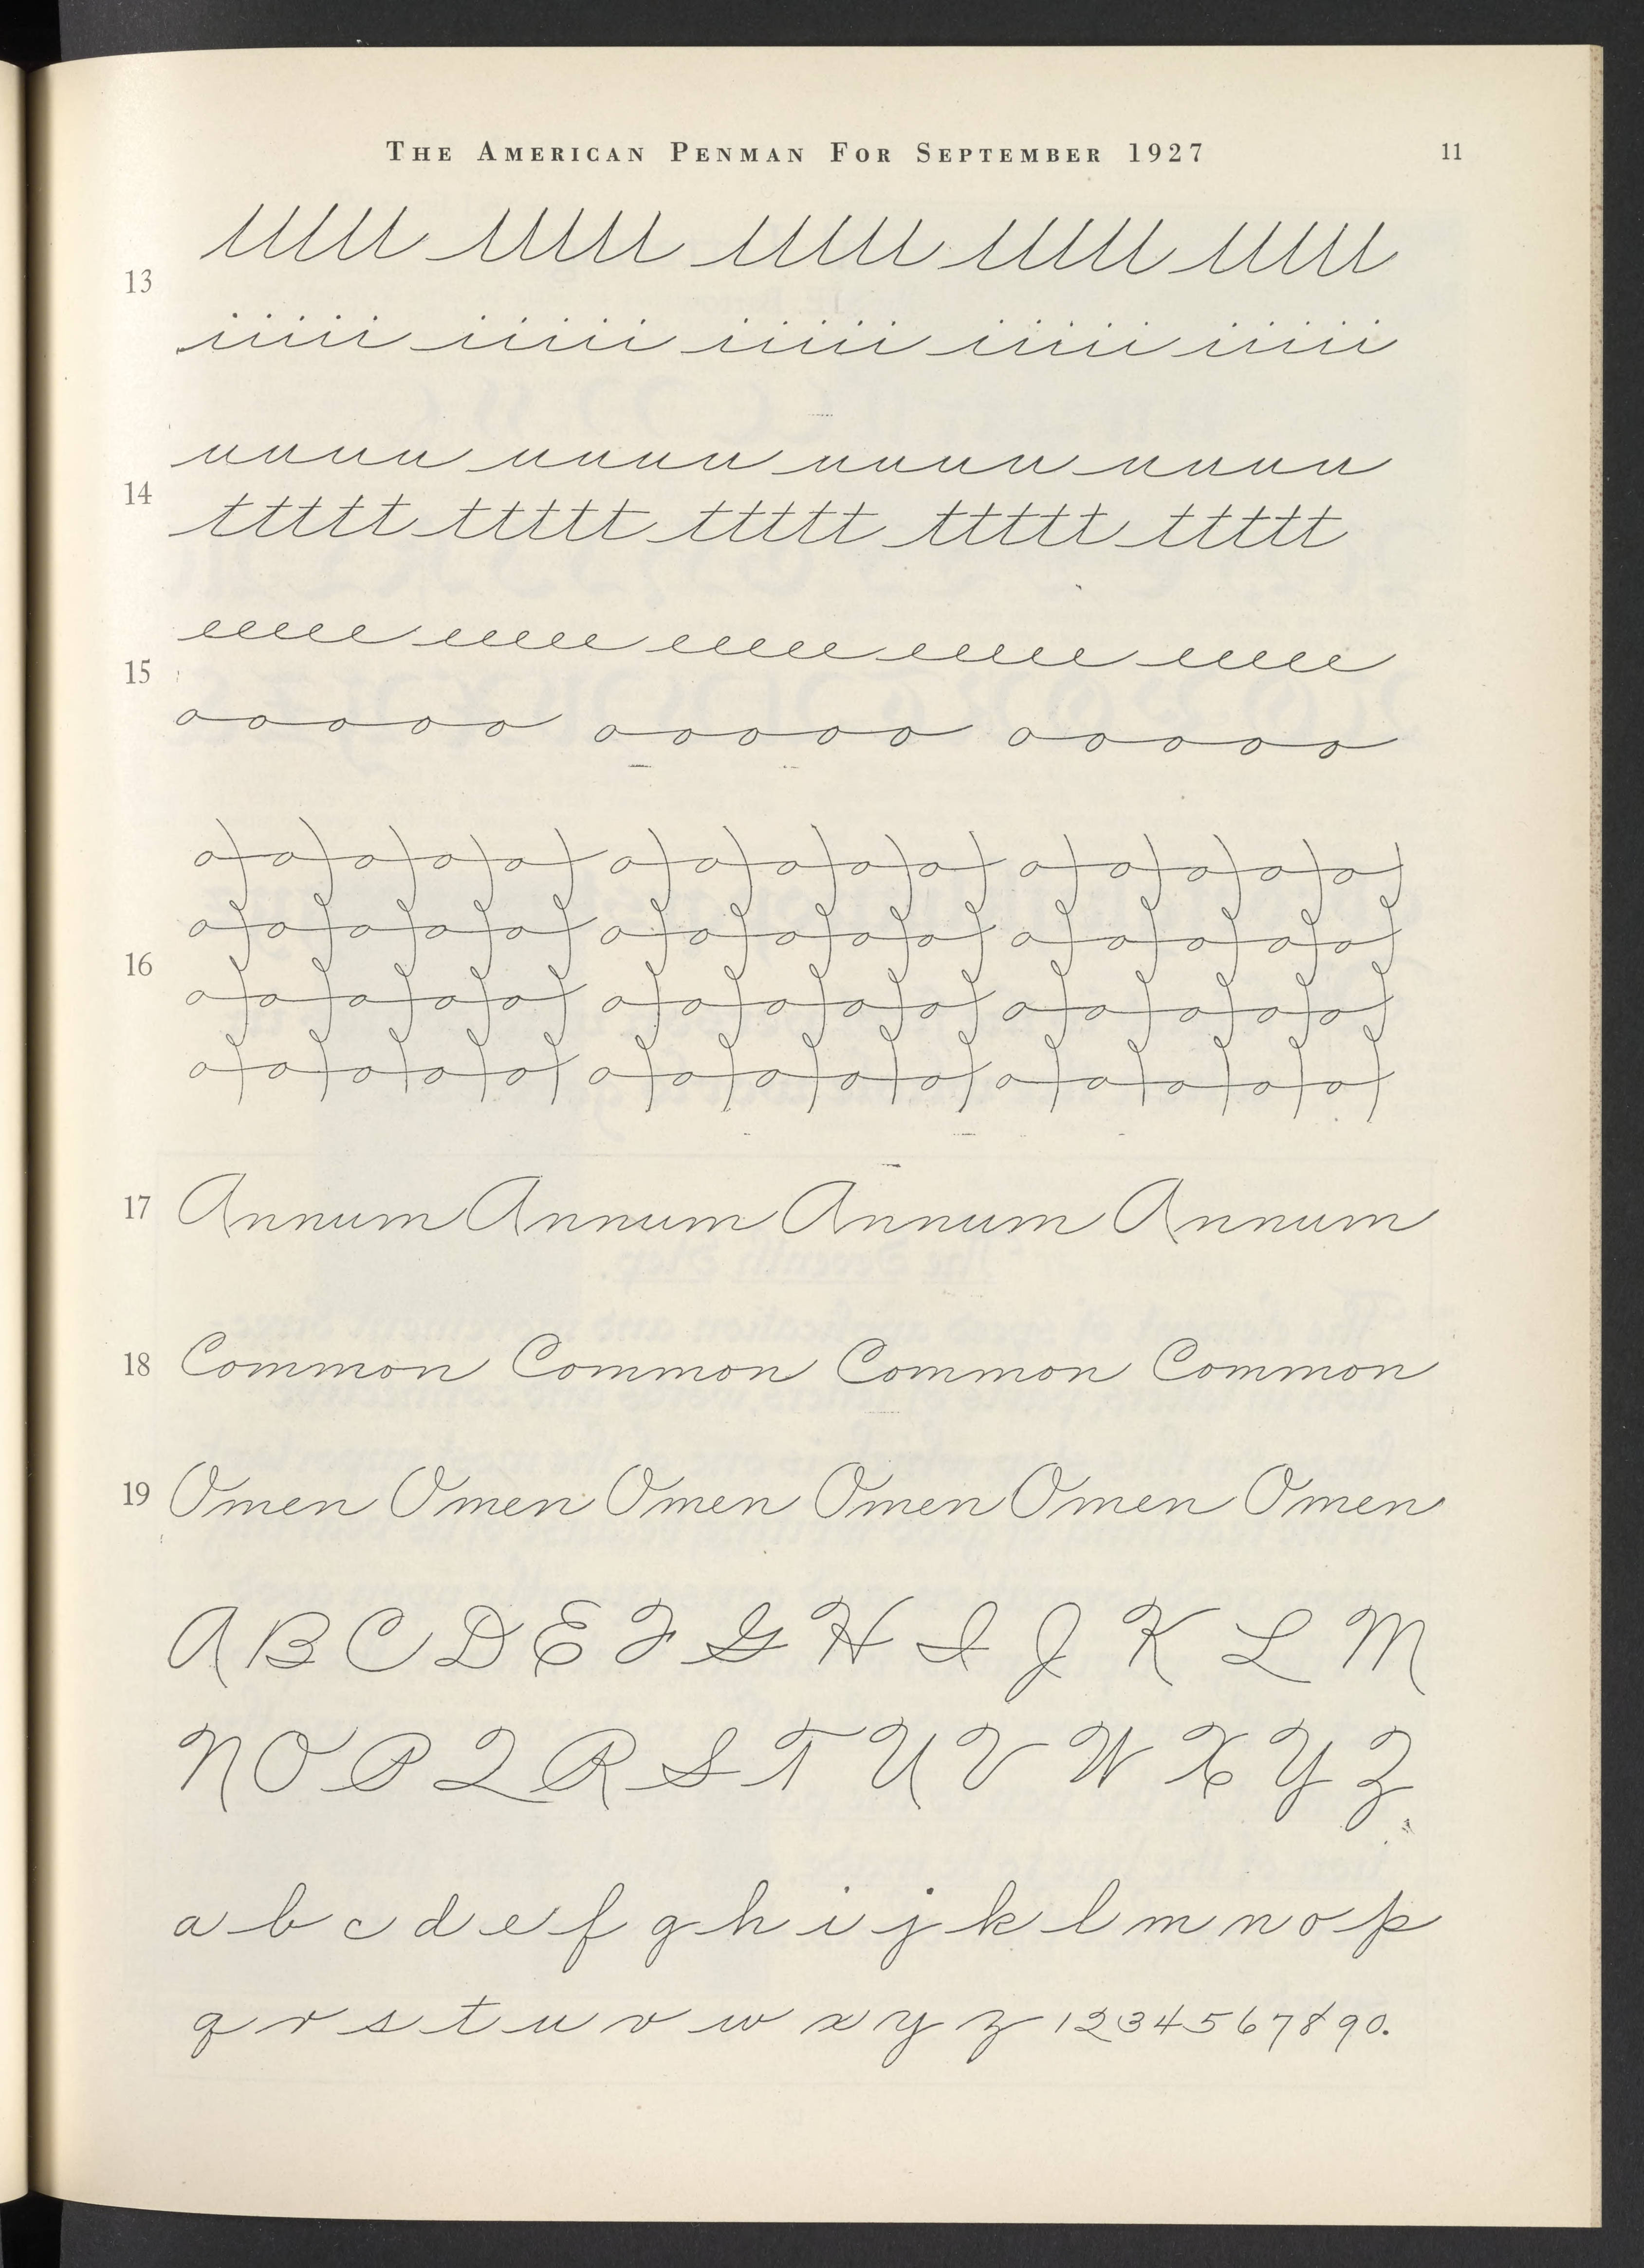 THE AMERICAN PENMAN FOR SEPTEMBER 1927 11
13
iiiii iiiii iiiii iiiii iiiii
14
uuuu uuuu uuuu uuuu
ttttt ttttt ttttt ttttt ttttt
eeeee eeeee eeeee eeeee eeeee
15
ooooo ooooo ooooo
16
17 Annum Annum Annum Annum
18 Common Common Common Common
19 Omen Omen Omen Omen Omen Omen
A B C D E F G H I J K L M
N O P Q R S T U V W X Y Z
a b c d e f g h i j k l m n o p
q r s t u v w x y z 1234567890.